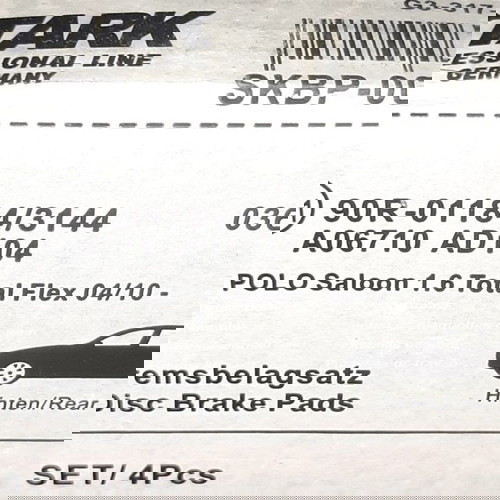 TARK
ESSIONAL LINE
MANY
GERMAN
SKBP-00
90R-01184/3144
A06710 AD104
POLO Saloon 1.6 Total Flex 04/10 -
emsbelagsatz
Hinten/Rear Disc Brake Pads
SET/ 4Pcs